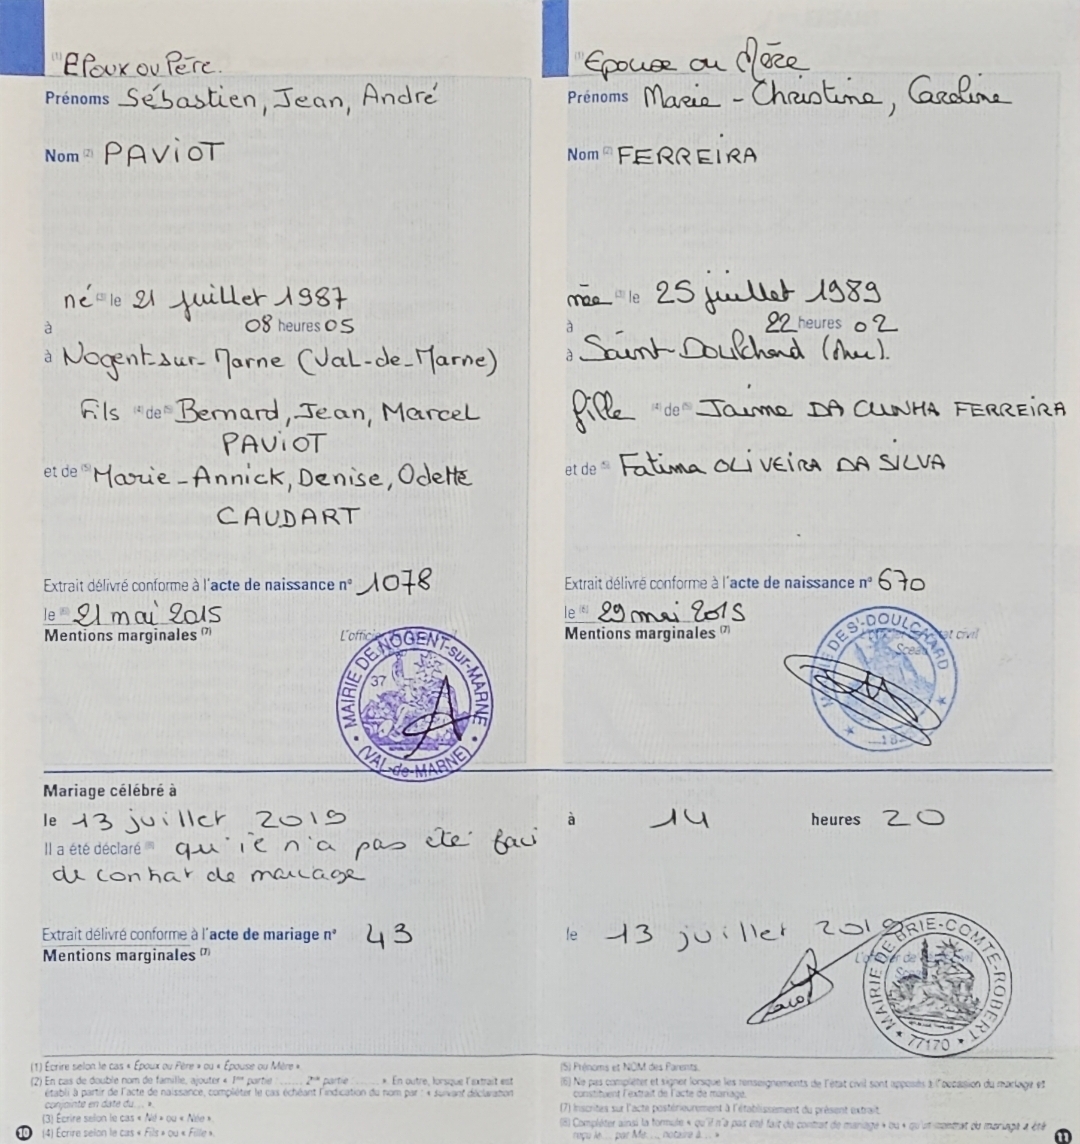 (1) Epoux ou Père.
Prénoms Sébastien, Jean, André
Nom (2) PAVIOT
né (3) le 21 juillet 1987
à 08 heures 05
à Nogent-sur-Marne (Val-de-Marne)
Fils (4) de (5) Bernard, Jean, Marcel
PAVIOT
et de (5) Marie-Annick, Denise, Odette
CAUDART
Extrait délivré conforme à l'acte de naissance n° 1078
le (6) 21 mai 2015
Mentions marginales (7)
L'offici
MAIRIE DE NOGENT-sur-MARNE
37
(VAL-de-MARNE)
(1) Epouse ou Mère
Prénoms Marie-Christine, Caroline
Nom (2) FERREIRA
née (3) le 25 juillet 1989
à 22 heures 02
à Saint-Doulchard (Cher).
fille (4) de (5) Jaime DA CUNHA FERREIRA
et de (5) Fatima OLIVEIRA DA SILVA
Extrait délivré conforme à l'acte de naissance n° 670
le (6) 29 mai 2015
Mentions marginales (7)
état civil
Sceau
DE ST-DOULCHARD
Mariage célébré à
le 13 juillet 2019 à 14 heures 20
Il a été déclaré (8) qu'il n'a pas été fait
de contrat de mariage
Extrait délivré conforme à l'acte de mariage n° 43 le 13 juillet 2019
Mentions marginales (7)
MAIRIE DE BRIE-COMTE-ROBERT
77170
(1) Écrire selon le cas « Époux ou Père » ou « Épouse ou Mère ».
(2) En cas de double nom de famille, ajouter « 1ère partie : ....... 2nde partie : ....... ». En outre, lorsque l'extrait est
établi à partir de l'acte de naissance, compléter le cas échéant l'indication du nom par : « suivant déclaration
conjointe en date du ... ».
(3) Écrire selon le cas « Né » ou « Née ».
10 (4) Écrire selon le cas « Fils » ou « Fille ».
(5) Prénoms et NOM des Parents.
(6) Ne pas compléter et signer lorsque les renseignements de l'état civil sont apposés à l'occasion du mariage et
constituent l'extrait de l'acte de mariage.
(7) Inscrites sur l'acte postérieurement à l'établissement du présent extrait.
(8) Compléter ainsi la formule « qu'il n'a pas été fait de contrat de mariage » ou « qu'un contrat de mariage a été
reçu le ... par Me ..., notaire à ... » 11